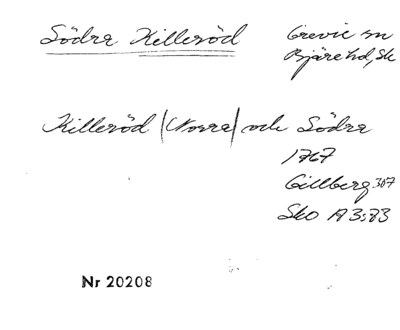 Södra Killeröd
Grevie sn
Bjäre hd, Sk
Killeröd (Norra) och Södra
1767
Gillberg 307
Sko A 3:83
Nr 20208